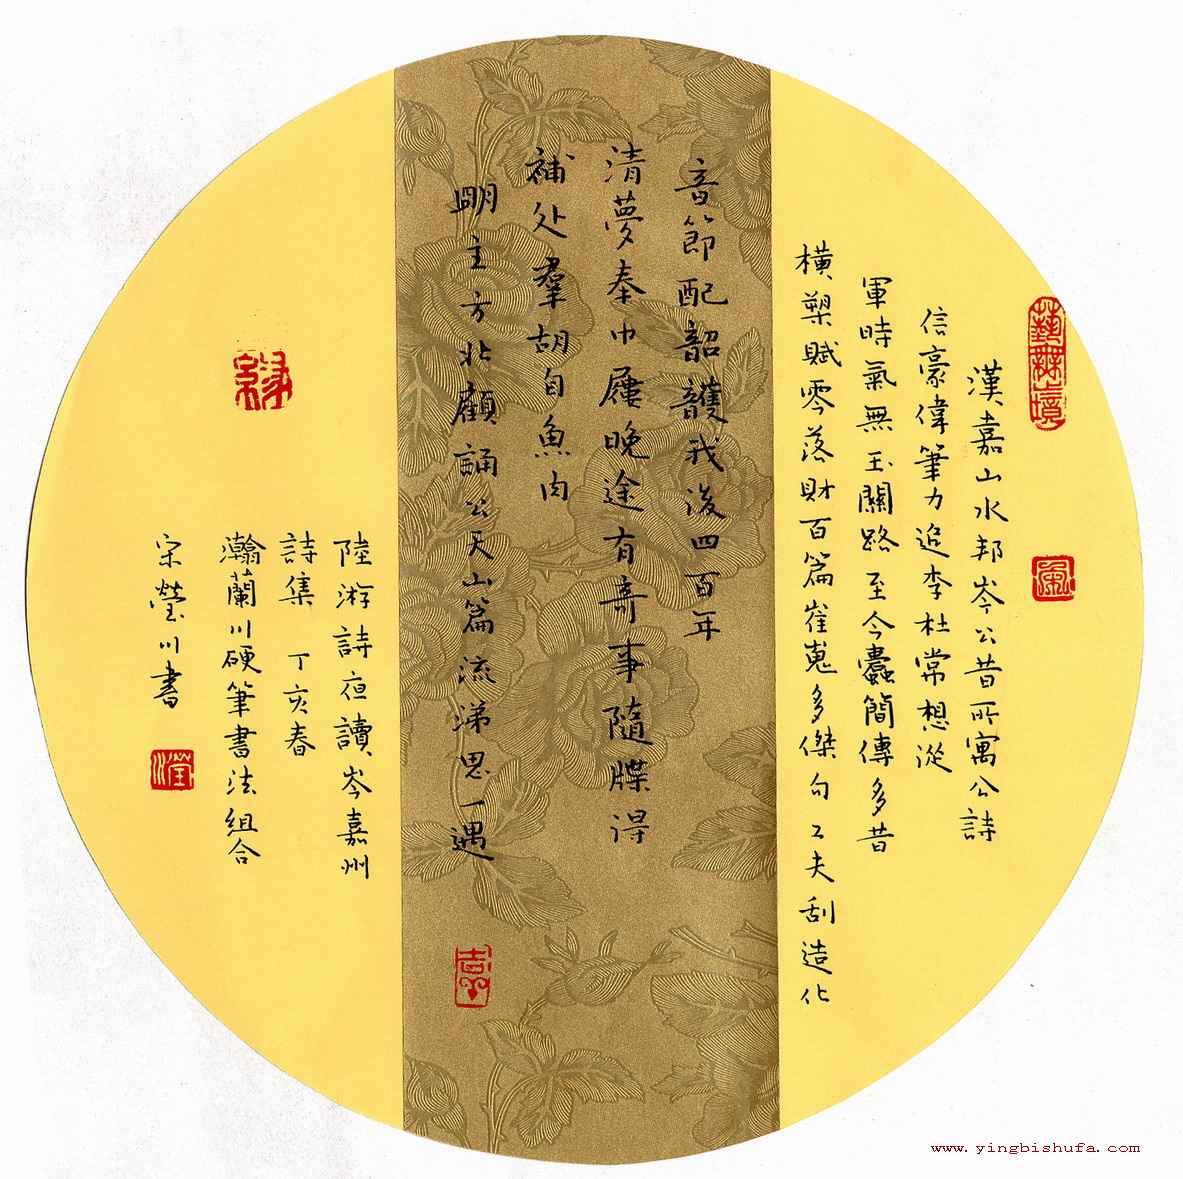 漢嘉山水邦岑公昔所寓公詩
信豪偉筆力追李杜常想從
軍時氣無玉關路至今蠹簡傳多昔
橫槊賦零落財百篇崔嵬多傑句工夫刮造化
音節配韶頀我後四百年
清夢奉巾屨晚途有奇事隨牒得
補处羣胡自魚肉
明主方北顧誦公天山篇流涕思一遇
陸游詩夜讀岑嘉州
詩集 丁亥春
瀚蘭川硬筆書法組合
宋瑩川書
www.yingbishufa.com